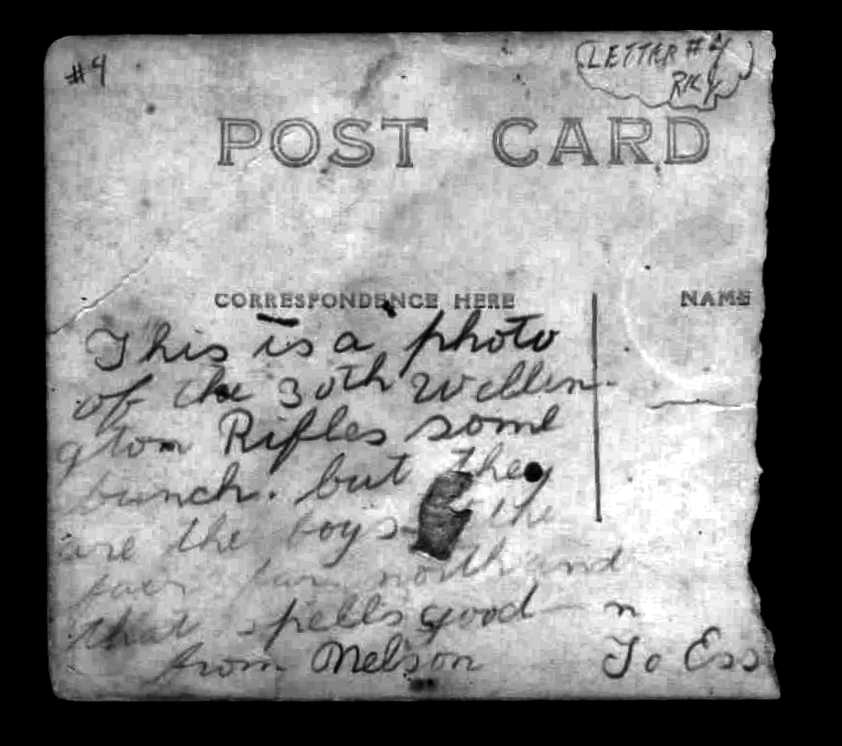 #4
LETTER #4
RKY
POST CARD
CORRESPONDENCE HERE
NAME
This is a photo
of the 30th Wellin-
gton Rifles some
bunch. but they
are the boys the
far north and
that spells good n
from Nelson To Ess